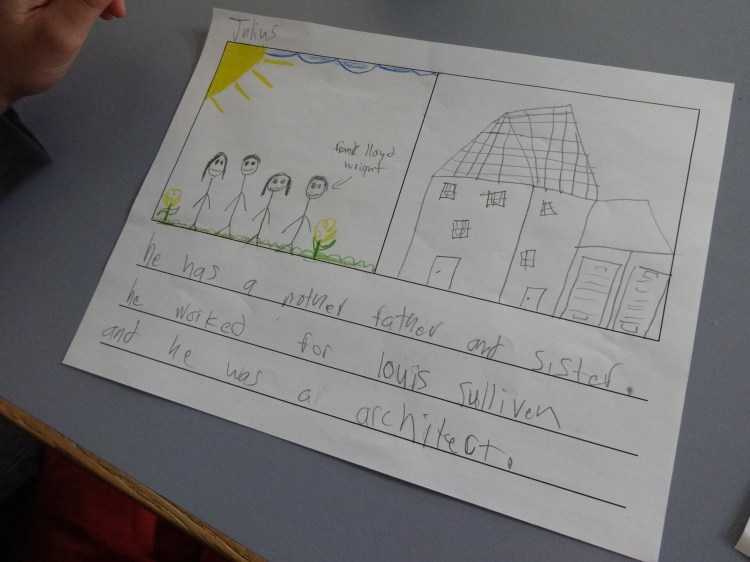 Julius
frank lloyd
wright
he has a mother father and sister.
he worked for louis sulliven
and he was a architect.